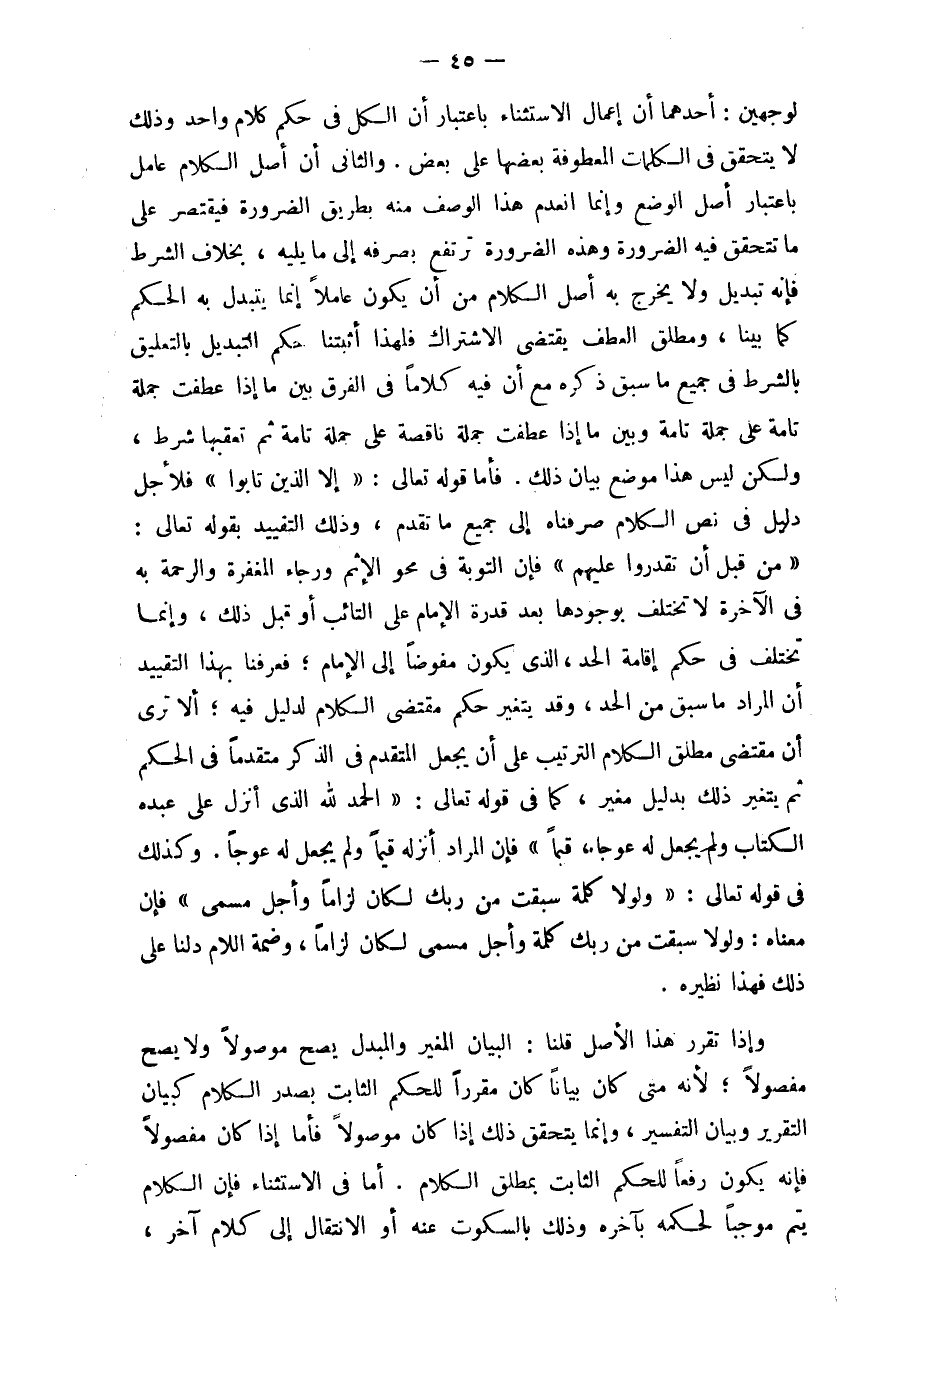 — ٤٥ —
لوجهين : أحدهما أن إعمال الاستثناء باعتبار أن الكل فى حكم كلام واحد وذلك
لا يتحقق فى الكلمات المعطوفة بعضها على بعض . والثانى أن أصل الكلام عامل
باعتبار أصل الوضع وإنما انعدم هذا الوصف منه بطريق الضرورة فيقتصر على
ما تتحقق فيه الضرورة وهذه الضرورة ترتفع بصرفه إلى ما يليه ، بخلاف الشرط
فإنه تبديل ولا يخرج به أصل الكلام من أن يكون عاملاً إنما يتبدل به الحكم
كما بينا ، ومطلق العطف يقتضى الاشتراك فلهذا أثبتنا حكم التبديل بالتعليق
بالشرط فى جميع ما سبق ذكره مع أن فيه كلاماً فى الفرق بين ما إذا عطفت جملة
تامة على جملة تامة وبين ما إذا عطفت جملة ناقصة على جملة تامة ثم تعقبها شرط ،
ولكن ليس هذا موضع بيان ذلك . فأما قوله تعالى : « إلا الذين تابوا » فلأجل
دليل فى نص الكلام صرفناه إلى جميع ما تقدم ، وذلك التقييد بقوله تعالى :
« من قبل أن تقدروا عليهم » فإن التوبة فى محو الإثم ورجاء المغفرة والرحمة به
فى الآخرة لا تختلف بوجودها بعد قدرة الإمام على التائب أو قبل ذلك ، وإنما
تختلف فى حكم إقامة الحد ، الذى يكون مفوضاً إلى الإمام ؛ فعرفنا بهذا التقييد
أن المراد ما سبق من الحد ، وقد يتغير حكم مقتضى الكلام لدليل فيه ؛ ألا ترى
أن مقتضى مطلق الكلام الترتيب على أن يجعل المتقدم فى الذكر متقدماً فى الحكم
ثم يتغير ذلك بدليل مغير ، كما فى قوله تعالى : « الحمد لله الذى أنزل على عبده
الكتاب ولم يجعل له عوجا، قيماً » فإن المراد أنزله قيماً ولم يجعل له عوجاً . وكذلك
فى قوله تعالى : « ولولا كلمة سبقت من ربك لكان لزاماً وأجل مسمى » فإن
معناه : ولولا سبقت من ربك كلمة وأجل مسمى لكان لزاماً ، وضمة اللام دلنا على
ذلك فهذا نظيره .
وإذا تقرر هذا الأصل قلنا : البيان المغير والمبدل يصح موصولاً ولا يصح
مفصولاً ؛ لأنه متى كان بياناً كان مقرراً للحكم الثابت بصدر الكلام كبيان
التقرير وبيان التفسير ، وإنما يتحقق ذلك إذا كان موصولاً فأما إذا كان مفصولاً
فإنه يكون رفعاً للحكم الثابت بمطلق الكلام . أما فى الاستثناء فإن الكلام
يتم موجباً لحكمه بآخره وذلك بالسكوت عنه أو الانتقال إلى كلام آخر ،